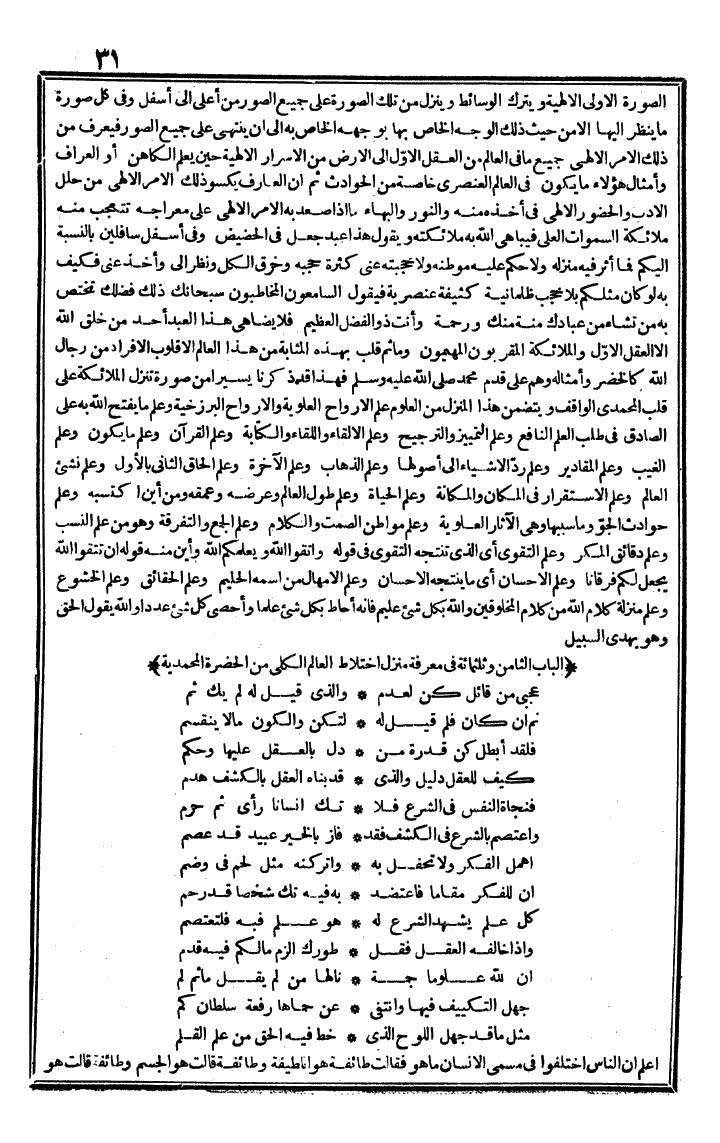 ٣١
الصورة الاولى الالهية ويترك الوسائط وينزل من تلك الصورة على جميع الصور من أعلى الى أسفل وفى كل صورة
ما ينظر اليها الامن حيث ذلك الوجه الخاص بها بوجهه الخاص به الى ان ينتهى على جميع الصور فيعرف من
ذلك الامر الالهى جميع مافى العالم من العقل الاوّل الى الارض من الاسرار الالهية حين يعلم الكاهن أو العراف
وأمثال هؤلاء ما يكون فى العالم العنصرى خاصة من الحوادث ثم ان العارف يكسو ذلك الامر الالهى من حلل
الادب والحضور الالهى فى أخذه منه والنور والبهاء ما اذا صعد به الامر الالهى على معراجه تتعجب منه
ملائكة السموات العلى فيباهى الله به ملائكته ويقول هذا عبد جعل فى الحضيض وفى أسفل سافلين بالنسبة
اليكم فما أثر فيه منزله ولا حكم عليه موطنه ولا حجبته عنى كثرة حجبه وخرق الكل ونظر الى وأخذ عنى فكيف
به لو كان مثلكم بلا حجب ظلمانية كثيفة عنصرية فيقول السامعون المخاطبون سبحانك ذلك فضلك تختص
به من تشاء من عبادك منة منك ورحمة وأنت ذو الفضل العظيم فلا يضاهى هذا العبد أحد من خلق الله
الا العقل الاوّل والملائكة المقربون المهيمون وماثم قلب بهذه المثابة من هذا العالم الاقلوب الافراد من رجال
الله كالخضر وأمثاله وهم على قدم محمد صلى الله عليه وسلم فهذا قد ذكرنا يسيرا من صورة تنزل الملائكة على
قلب المحمدى الواقف ويتضمن هذا المنزل من العلوم علم الارواح العلوية والارواح البرزخية وعلم ما يفتح الله به على
الصادق فى طلب العلم النافع وعلم التمييز والترجيح وعلم الالقاء واللقاء والكتابة وعلم القرآن وعلم ما يكون وعلم
الغيب وعلم المقادير وعلم ردّ الاشياء الى أصولها وعلم الذهاب وعلم الآخرة وعلم الحاق الثانى بالأول وعلم نشئ
العالم وعلم الاستقرار فى المكان والمكانة وعلم الحياة وعلم طول العالم وعرضه وعمقه ومن أين اكتسبه وعلم
حوادث الجوّ وما سببها وهى الآثار العلوية وعلم مواطن الصمت والكلام وعلم الجمع والتفرقة وهو من علم النسب
وعلم دقائق المكر وعلم التقوى أى الذى تنتجه التقوى فى قوله واتقوا الله ويعلمكم الله وأين منه قوله ان تتقوا الله
يجعل لكم فرقانا وعلم الاحسان أى ما ينتجه الاحسان وعلم الامهال من اسمه الحليم وعلم الحقائق وعلم الخشوع
وعلم منزلة كلام الله من كلام المخلوقين والله بكل شئ عليم فانه أحاط بكل شئ علما وأحصى كل شئ عددا والله يقول الحق
وهو يهدى السبيل
﴿الباب الثامن وثلثمائة فى معرفة منزل اختلاط العالم الكلى من الحضرة المحمدية﴾
عجبى من قائل كن لعدم * والذى قيل له لم يك ثم
ثم ان كان فلم قيل له * لتكن والكون مالا ينقسم
فلقد أبطل كن قدرة من * دل بالعقل عليها وحكم
كيف للعقل دليل والذى * قد بناه العقل بالكشف هدم
فنجاة النفس فى الشرع فلا * تك انسانا رأى ثم حرم
واعتصم بالشرع فى الكشف فقد * فاز بالخير عبيد قد عصم
اهمل الفكر ولا تحفل به * واتركنه مثل لحم فى وضم
ان للفكر مقاما فاعتضد * به فيه تك شخصا قد رحم
كل علم يشهد الشرع له * هو علم فبه فلتعتصم
واذا خالفه العقل فقل * طورك الزم مالكم فيه قدم
ان لله علوما جمة * نالها من لم يقل ماثم لم
جهل التكييف فيها وانتفى * عن حماها رفعة سلطان كم
مثل ما قد جهل اللوح الذى * خط فيه الحق من علم القلم
اعلم ان الناس اختلفوا فى مسمى الانسان ما هو فقالت طائفة هو اناطيفة وطائفة قالت هو الجسم وطائفة قالت هو